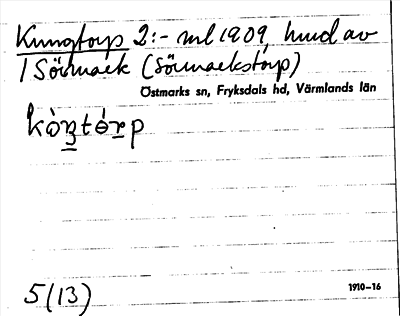 Kungtorp 2:- ml 1909, hmd av
1 Sörmark (Sörmarkstorp)
Östmarks sn, Fryksdals hd, Värmlands län
5(13)
1910-16